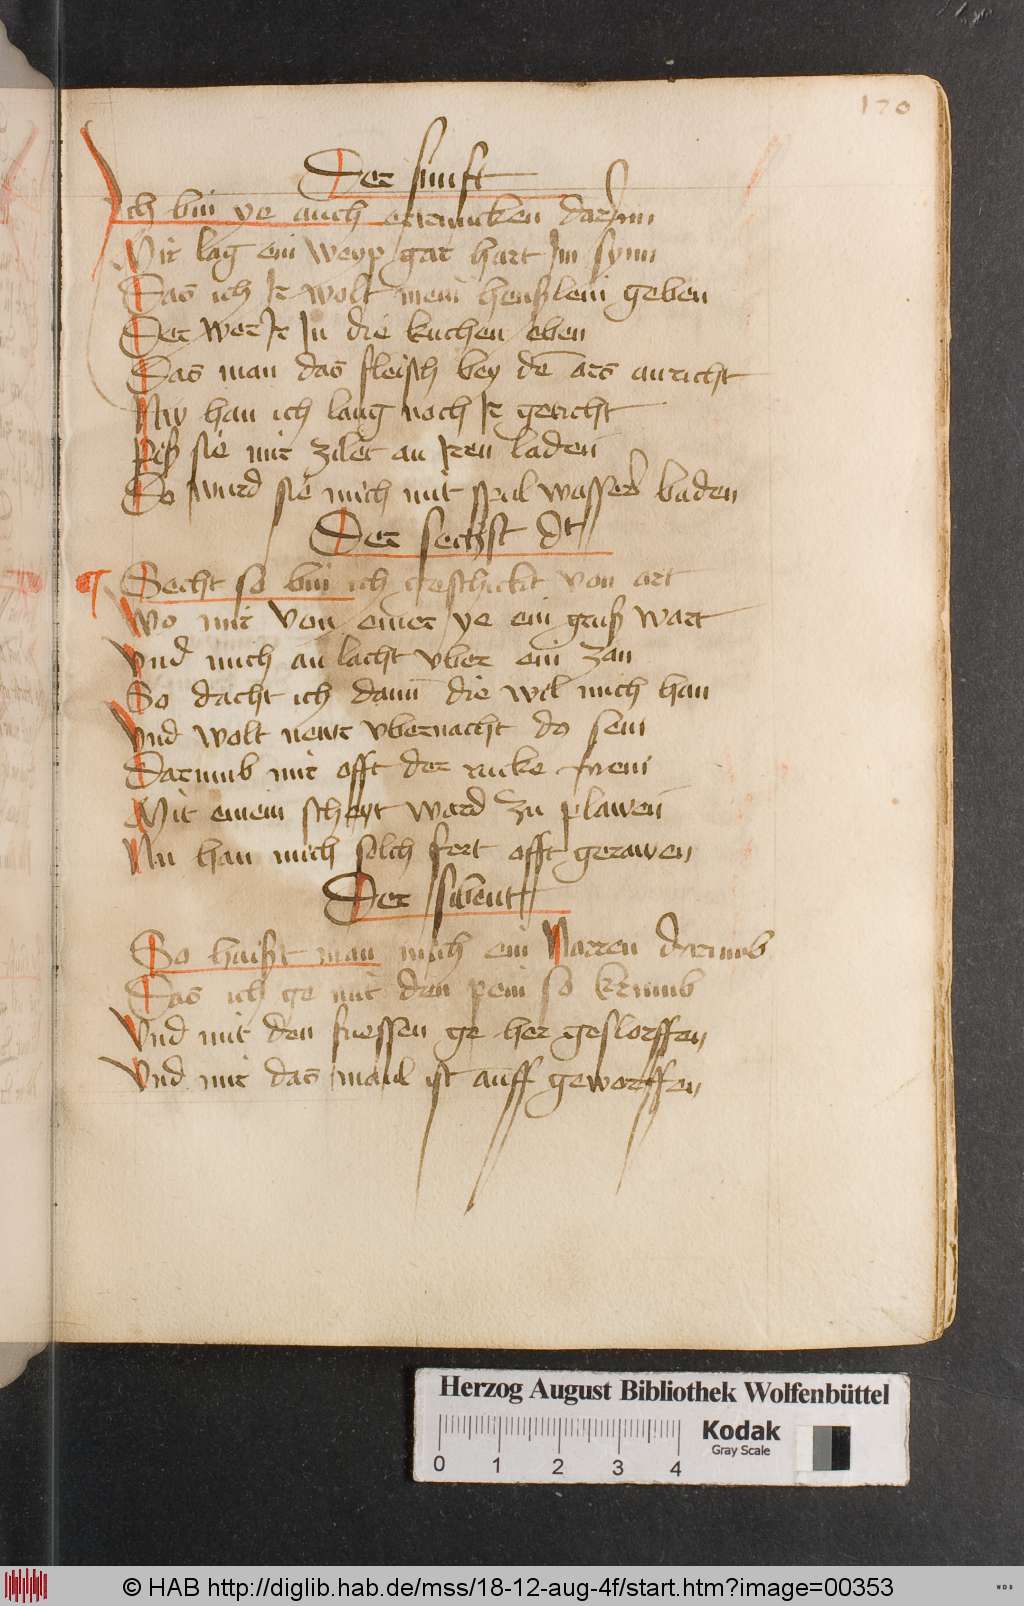 170
Der funft
Ich bin ye auch ertruncken darinn
Mir lag ein weyp gar hart Im synn
Das ich Ir wolt mein henslein geben
Der wer Ir In die kuchen eben
Das man das fleisch bey dē ars anricht
Nw han ich lang noch Ir gericht
Piß sie mir zilet an Iren laden
Do wurd sie mich mit spul wasser baden
Der sechst dt
Secht so bin ich geschickt von art
Wo mir von einer ye ein gruß wart
Vnd mich an lacht vber ein zan
So dacht ich dann die wil mich han
Vnd wolt newr vbernacht do sein
Darumb mir offt der rucke mein
Mit einem scheyt ward zu plawen
Nu han mich solch fert offt gerawen
Der sibent
So haißt man mich ein Narren darumb
Das ich ge mit den pein so krumb
Vnd mit den fuessen ge her geslorffen
Vnd mir das maul ist auff geworffen
Herzog August Bibliothek Wolfenbüttel
Kodak
Gray Scale
0 1 2 3 4
© HAB http://diglib.hab.de/mss/18-12-aug-4f/start.htm?image=00353